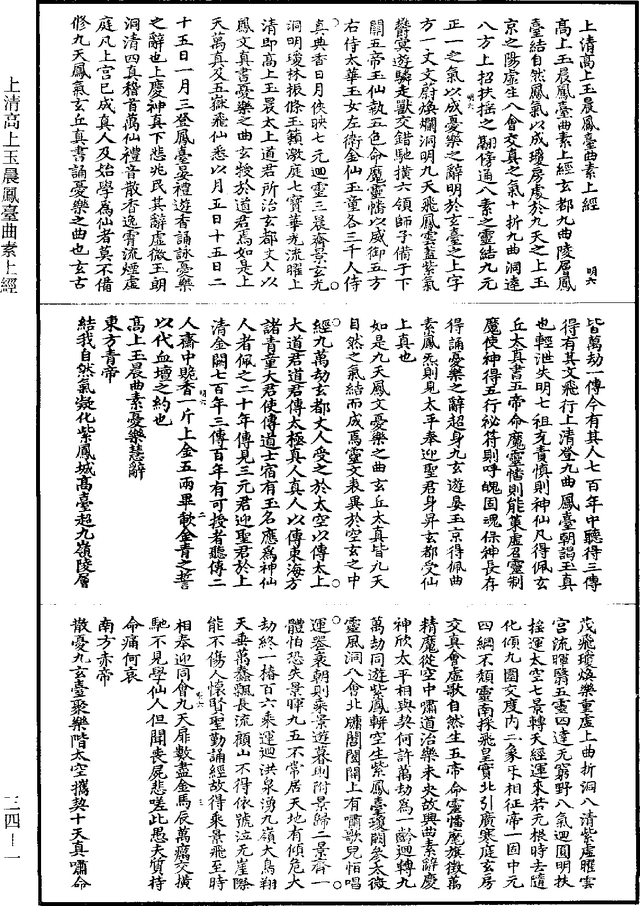 上清高上玉晨鳳臺曲素上經
高上玉晨鳳臺曲素上經玄都九曲陵層鳳
臺結自然鳳氣以成瓊房處於九天之上玉
京之陽虛生八會交真之氣十折九曲洞達
八方上招扶搖之翮傍通八素之靈結九元
正一之氣以成憂樂之辭明於玄臺之上字
方一丈文蔚煥爛洞明九天飛鳳雲蓋紫氣
欝冥遊驎走獸交錯馳橫六領師子備于下
關五帝玉仙執五色命魔靈幡以威御五方
右侍太華玉女左衛金仙玉童各三千人侍
真典香日月俠映七元迴靈三晨齊景玄光
洞明瓊林振條玉籟激庭七寶華光流曜上
清即高上玉晨太上道君所治玄都丈人以
鳳文真書憂樂之曲玄授於道君為如是上
天萬真及五嶽飛仙悉以月五日十五日二
十五日一月三登鳳臺晏禮遊香誦詠憂樂
之辭也上慶神真下悲兆民其辭虛微玉朗
洞清四真稽首萬仙禮音散香逸霄流煙虛
庭凡上宮已成真人及始學為仙者莫不備
修九天鳳氣玄丘真書誦憂樂之曲也玄古
皆萬劫一傳今有其人七百年中聽得三傳
得有其文飛行上清登九曲鳳臺朝謁玉真
也輕泄失明七祖充責慎則神仙凡得佩玄
丘太真書五帝命魔靈幡則能策虛召靈制
魔使神得五行祕符則呼魄固魂保神長存
得誦憂樂之辭超身九玄遊晏玉京得佩曲
素鳳炁則見太平奉迎聖君身昇玄都受仙
上真也
如是九天鳳文憂樂之曲玄丘太真皆九天
自然之氣結而成焉靈文表異於空玄之中
經九萬劫玄都丈人受之於太空以傳太上
大道君道君傳太極真人真人以傳東海方
諸青童大君使傳道士宿有玉名應為神仙
人者佩之二十年傳見三元君迎聖君於上
清金闕七百年三傳百年有可授者聽傳二
人齎中貺香一斤上金五兩畢歃金青之誓
以代血壇之約也
高上玉晨曲素憂樂慧辭
東方青帝
結我自然氣凝化紫鳳城高臺超九嶺陵層
茂飛瓊煥樂重虛上曲折洞八清紫虛曜雲
宮流暉翳五靈四達无窮野八氣迴圓明扶
搖運太空七景轉天經運來若元根時去隨
化傾九圖交度內二象互相征帝一固中元
四網不頹靈南採飛皇實北引廣寒庭玄房
交真會虛歌自然生五帝命靈幡魔旗徵萬
精魔從空中嘯道治樂未央故興曲素辭慶
神欣太平相與契何許萬劫為一齡迴轉九
萬劫同遊紫鳳軿空生紫鳳臺瓊闕參太微
靈風洞八會北牖閤闥開上有嘯歌兒怕唱
運啓衰朝則乘景遊暮則附景歸二景齊一
體怕恐失景暉九五不常居天地有傾危大
劫終一椿百六乘運迴洪泉湧九嶺大鳥翔
天垂萬蠢飄長流顧山不得依號泣无崖際
能不傷人懷賢聖勤誦經故得乘景飛至時
相奉迎同會九天扉數盡金馬辰萬癘交橫
馳不見學仙人但聞喪屍悲嗟此愚夫質持
命痛何哀
南方赤帝
散憂九玄臺聚樂階太空攜契十天真嘯命
上清高上玉晨鳳臺曲素上經
三四—一